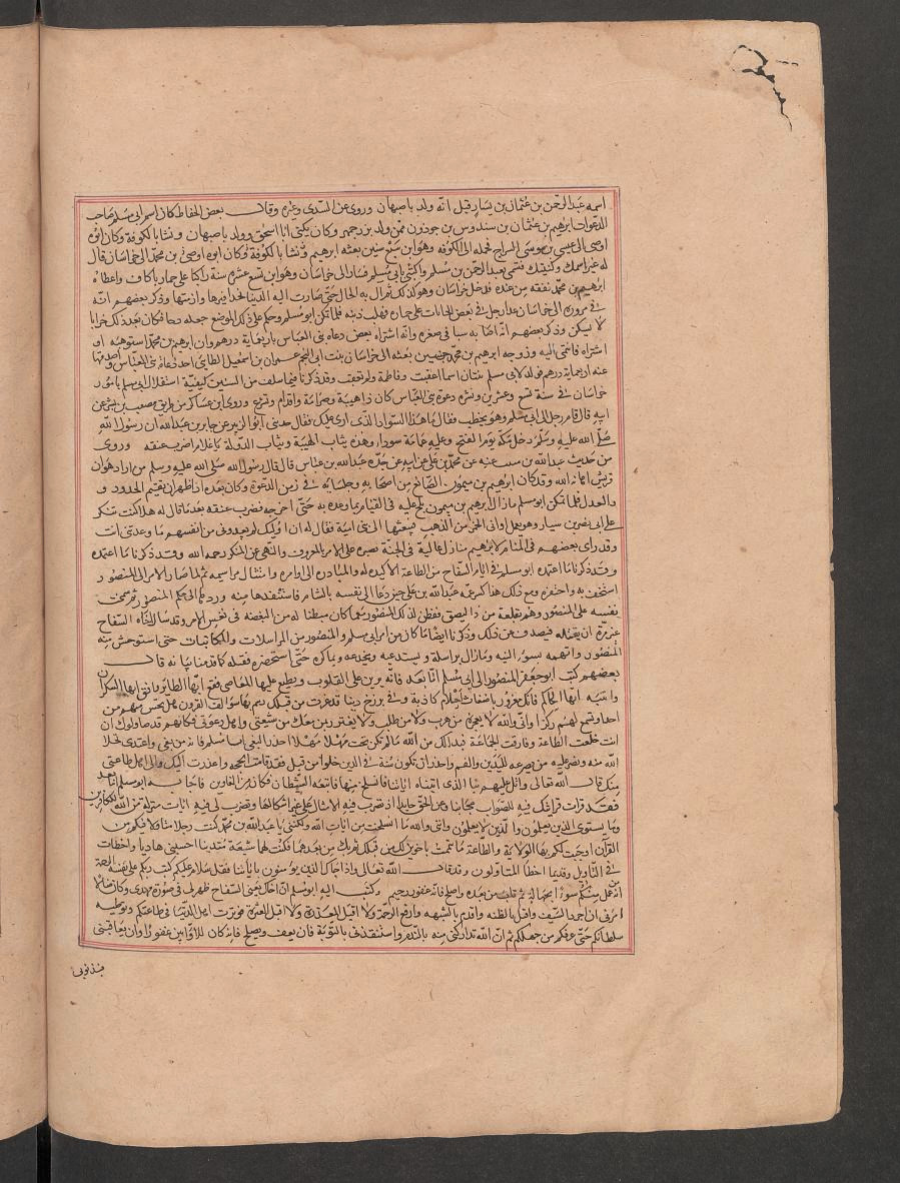 اسمه عبد الرحمن بن عثمان بن يسار قيل انه ولد باصبهان وروى عن السدى وغيره وقال بعض الحفاظ كان اسم ابى مسلم صاحب
الدعوات ابرهيم بن عثمان بن سندوس بن جودزن من ولد بزرجمهر وكان يكنى ابا اسحق وولد باصبهان ونشا بالكوفة وكان ابوه
اوصى الى عيسى بن موسى السراج فحمله الى الكوفه وهو ابن سبع سنين بعثه ابرهيم بن محمد الى خراسان قال
له غير اسمك وكنيتك فتسمى بعبد الرحمن بن مسلم واكتنى بابى مسلم فسار الى خراسان وهو ابن تسع عشره سنة راكبا على حمار باكاف واعطاه
ابرهيم بن محمد نفقه من عنده فدخل خراسان وهو كذلك ثم ال به الحال حتى صارت اليه الدنيا بحذافيرها وازمتها وذكر بعضهم انه
فى مروره الى خراسان عدا رجل فى بعض الحانات على حماره فهلب ذنبه فلما تمكن ابو مسلم وحكم على ذلك الموضع جعله دكا فكان بعد ذلك خرابا
لا يسكن وذكر بعضهم انه اصابه سبا فى صغره وانه اشتراه بعض دعاه بنى العباس باربعماية درهم وان ابرهيم بن محمد استوهبه او
اشتراه فانتمى اليه وزوجه ابرهيم بن محمد حين بعثه الى خراسان بنت ابى النجم عمران بن اسمعيل الطائى احد دعاه بنى العباس واصدقها
عنه اربعماية درهم فولد لابى مسلم بنتان اسما اعقبت وفاطمة ولم تعقب وقد ذكرنا فيما سلف من السنين كيفية استقلال ابى مسلم بامور
خراسان فى سنة تسع وعشرين ونشره دعوة بنى العباس كان ذا هيبة وصرامة واقدام وتسرع وروى ابن عساكر من طريق مصعب بن بشر عن
ابيه قال قام رجل الى ابى مسلم وهو يخطب فقال ما هذا السواد الذى ارى عليك فقال حدثنى ابو الزبير عن جابر بن عبد الله ان رسول الله
صلى الله عليه وسلم دخل مكة يوم الفتح وعليه عمامة سودا وهذه ثياب الهيبة وثياب الدولة يا غلام اضرب عنقه وروى
من حديث عبد الله بن عنه عن محمد بن على عن ابيه عن جده عبد الله بن عباس قال قال رسول الله صلى الله عليه وسلم من اراد هوان
قريش اهانه الله وقد كان ابرهيم بن ميمون الصائغ من اصحابه وجلسايه فى زمن الدعوة وكان يعده اذا ظهر ان يقيم الحدود و
والعدل فلما تمكن ابو مسلم ما زال ابرهيم بن ميمون يلح عليه فى القيام بما وعده به حتى احرجه فضرب عنقه بعد ما قال له هلا كنت تنكر
على نصر بن سيار وهو يعمل اوانى الخمر من الذهب فيبعثها الى بنى امية فقال له ان اوليك لم يعدونى من انفسهم ما وعدتنى انت
وقد راى بعضهم فى المنام لابرهيم منازل عالية فى الجنة بصبره على الامر بالمعروف والنهى عن المنكر رحمه الله وقد ذكرنا ما اعتمده
ابو مسلم فى ايام السفاح من الطاعة الاكيده له والمبادره الى اوامره وامتثال مراسيمه ثم لما صار الامر الى المنصور
استخف به واحتقره ومع ذلك هذا كسر عمه عبد الله بن على حين دعا الى نفسه بالشام فاستنقذها منه وردها الى حكم المنصور ثم سمخت
نفسه على المنصور وهم بقلعه من ففطن لذلك المنصور مع ما كان مبطنا له من البغضه فى نفس الامر وقد سال اخاه السفاح
غير مرة ان يقتله فيصدف عن ذلك وذكرنا ايضا ما كان من امر ابى مسلم والمنصور من المراسلات والمكاتبات حتى استوحش منه
المنصور واتهمه بسوء النيه وما زال يراسله ويستدعيه ويخدعه ويماكره حتى استحضره فقتله كما قدمنا بيانه قال
بعضهم كتب ابو جعفر المنصور الى ابى مسلم اما بعد فانه يرين على القلوب ويطبع عليها المعاصى فقع ايها الطائر وافق ايها السكران
وانتبه ايها الحالم فانك مغرور باضغاث احلام كاذبة وفى برزخ دنيا قد غرت من قبلك وسم بها سوالف القرون هل تحس منهم من
احد او تسمع لهم ركزا وان الله لا يعجزه من هرب ولا من طلب ولا تغتر بمن معك من شيعتى واهل دعوتى فكانهم قد صاولوك ان
انت خلعت الطاعة وفارقت الجماعة فبدا لك من الله ما لم تكن تحتسب مهلا مهلا احذر البغى ابا مسلم فانه من بغى واعتدى تخلا
الله منه ونصر عليه من يصرعه لليدين والفم واحذر ان تكون سنة فى الذين خلوا من قبل فقد قامت الحجه واعذرت اليك والى اهل طاعتى
منك قال الله تعالى واتل عليهم نبا الذى اتيناه اياتنا فانسلخ منها فاتبعه الشيطان فكان من الغاوين فاجابه ابو مسلم اما بعد
فقد قرات كتابك فيه للصواب مجانبا وعن الحق حايدا اذ تضرب فيه الامثال على غير اشكالها وتضرب لى فيه ايات منزله من الله للكافرين
وما يستوى الذين يعلمون والذين لا يعلمون واننى والله ما انسلخت من ايات الله ولكننى يا عبد الله بن محمد كنت رجلا متاولا فيكم من
القران اوجبت لكم بها الولاية والطاعة فاتممت باخوين لك من قبلك ثم بك من بعدهما فكنت لهما شيعة متدينا احسبنى هاديا واخطات
فى التاويل وقديما اخطا المتاولون وقد قال الله تعالى واذا جاك الذين يؤمنون باياتنا فقل سلام عليكم كتب ربكم على نفسه الرحمة
انه من عمل منكم سوءا بجهالة ثم تاب من بعده واصلح فانه غفور رحيم وكتب اليه ابو مسلم ان اخاك يعنى السفاح ظهر لى فى صورة مهدى وكان ضالا
امرنى ان اجرد السيف واقتل بالظنه واقدم بالشبهه وارفع الرحمة ولا اقيل العثرة فوترت اهل الدنيا فى طاعتكم وتوطيه
سلطانكم حتى عرفكم من جهلكم ثم ان الله تداركنى منه بالندم واستنقذنى بالتوبة فان يعف ويصفح فانه كان للاوابين غفورا وان يعاقبنى
فبذنوبى